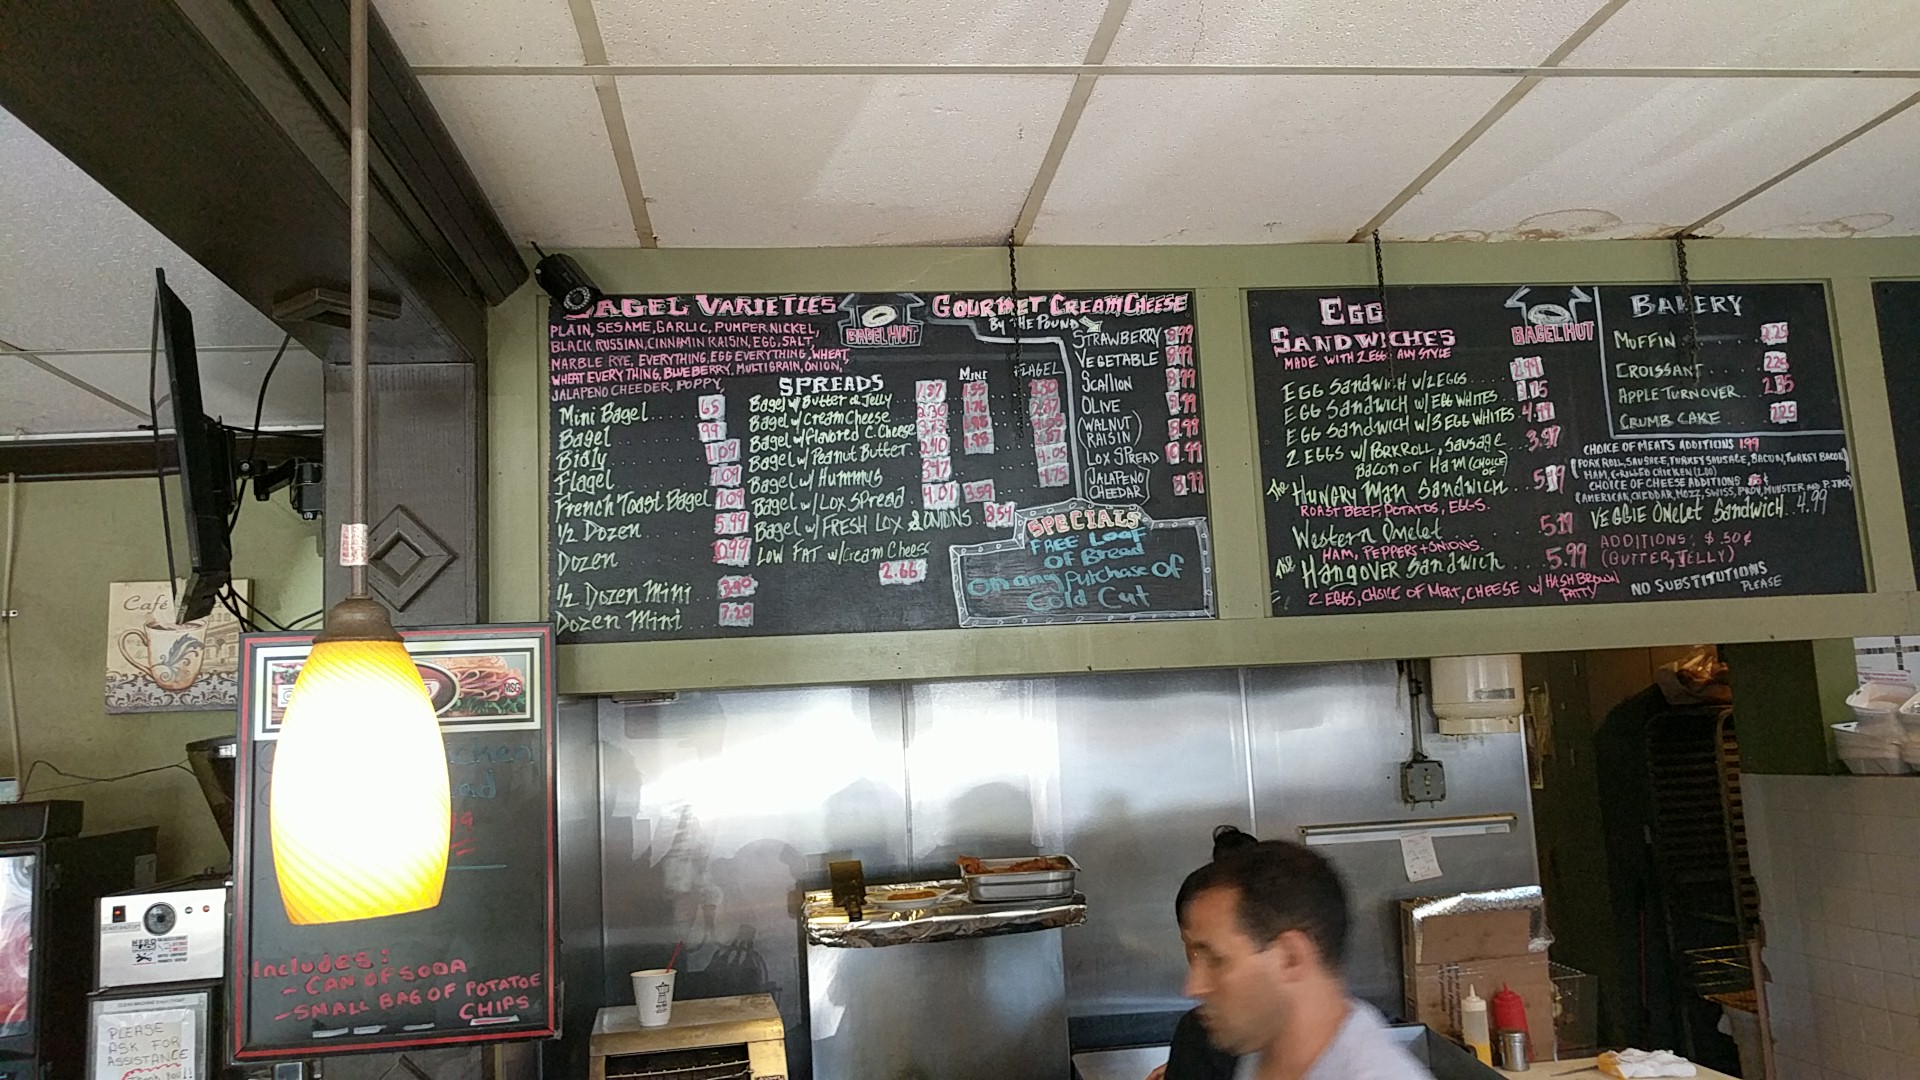 BAGEL VARIETIES
PLAIN, SESAME, GARLIC, PUMPERNICKEL,
BLACK RUSSIAN, CINNAMIN RAISIN, EGG, SALT,
MARBLE RYE, EVERYTHING, EGG EVERYTHING, WHEAT,
WHEAT EVERYTHING, BLUEBERRY, MULTIGRAIN, ONION,
JALAPENO CHEEDER, POPPY
Mini Bagel 65
Bagel 99
Bialy 1.09
Flagel 1.09
French Toast Bagel 1.09
1/2 Dozen 5.99
Dozen 10.99
1/2 Dozen Mini
Dozen Mini 7.20
BAGEL HUT
SPREADS
MINI FLAGEL
Bagel w/ Butter or Jelly
Bagel w/ Cream Cheese
Bagel w/ Flavored C. Cheese
Bagel w/ Peanut Butter 2.40
Bagel w/ Hummus 3.47
Bagel w/ Lox Spread 4.01 3.59
Bagel w/ FRESH LOX & ONIONS 8.54
LOW FAT w/ Cream Cheese
2.66
GOURMET CREAM CHEESE
BY THE POUND
STRAWBERRY 8.99
VEGETABLE 8.99
SCALLION 8.99
OLIVE 8.99
(WALNUT RAISIN) 8.99
LOX SPREAD
(JALAPENO CHEDAR) 8.99
SPECIALS
FREE Loaf
OF Bread
On any Purchase OF
Cold Cut
EGG
SANDWICHES
MADE WITH 2 EGGS ANY STYLE
EGG Sandwich w/2 EGGS 2.99
EGG Sandwich w/ EGG WHITES
EGG Sandwich w/3 EGG WHITES 4.49
2 EGGS w/ PORKROLL, Sausage 3.97
Bacon or Ham (CHOICE OF)
The HUNGRY MAN Sandwich
ROAST BEEF, POTATOS, EGGS.
Western Omelet 5.19
HAM, PEPPERS + ONIONS.
The Hangover Sandwich 5.99
2 EGGS, CHOICE OF MEAT, CHEESE w/ HASH BROWN PATTY
BAGEL HUT
BAKERY
MUFFIN 2.25
CROISSANT 2.25
APPLE TURNOVER 2.95
CRUMB CAKE 2.25
CHOICE OF MEATS ADDITIONS 1.99
(PORK ROLL, SAUSAGE, TURKEY SAUSAGE, BACON, TURKEY BACON
HAM, GRILLED CHICKEN (2.00)
CHOICE OF CHEESE ADDITIONS
(AMERICAN, CHEDDAR, MOZZ, SWISS, PROV, MUNSTER AND P. JACK)
VEGGIE OMELET Sandwich 4.99
ADDITIONS: $.50¢
(BUTTER, JELLY)
NO SUBSTITUTIONS
PLEASE
Café
MSG
Includes!
- CAN OF SODA
- SMALL BAG OF POTATOE
CHIPS
PLEASE
ASK FOR
ASSISTANCE